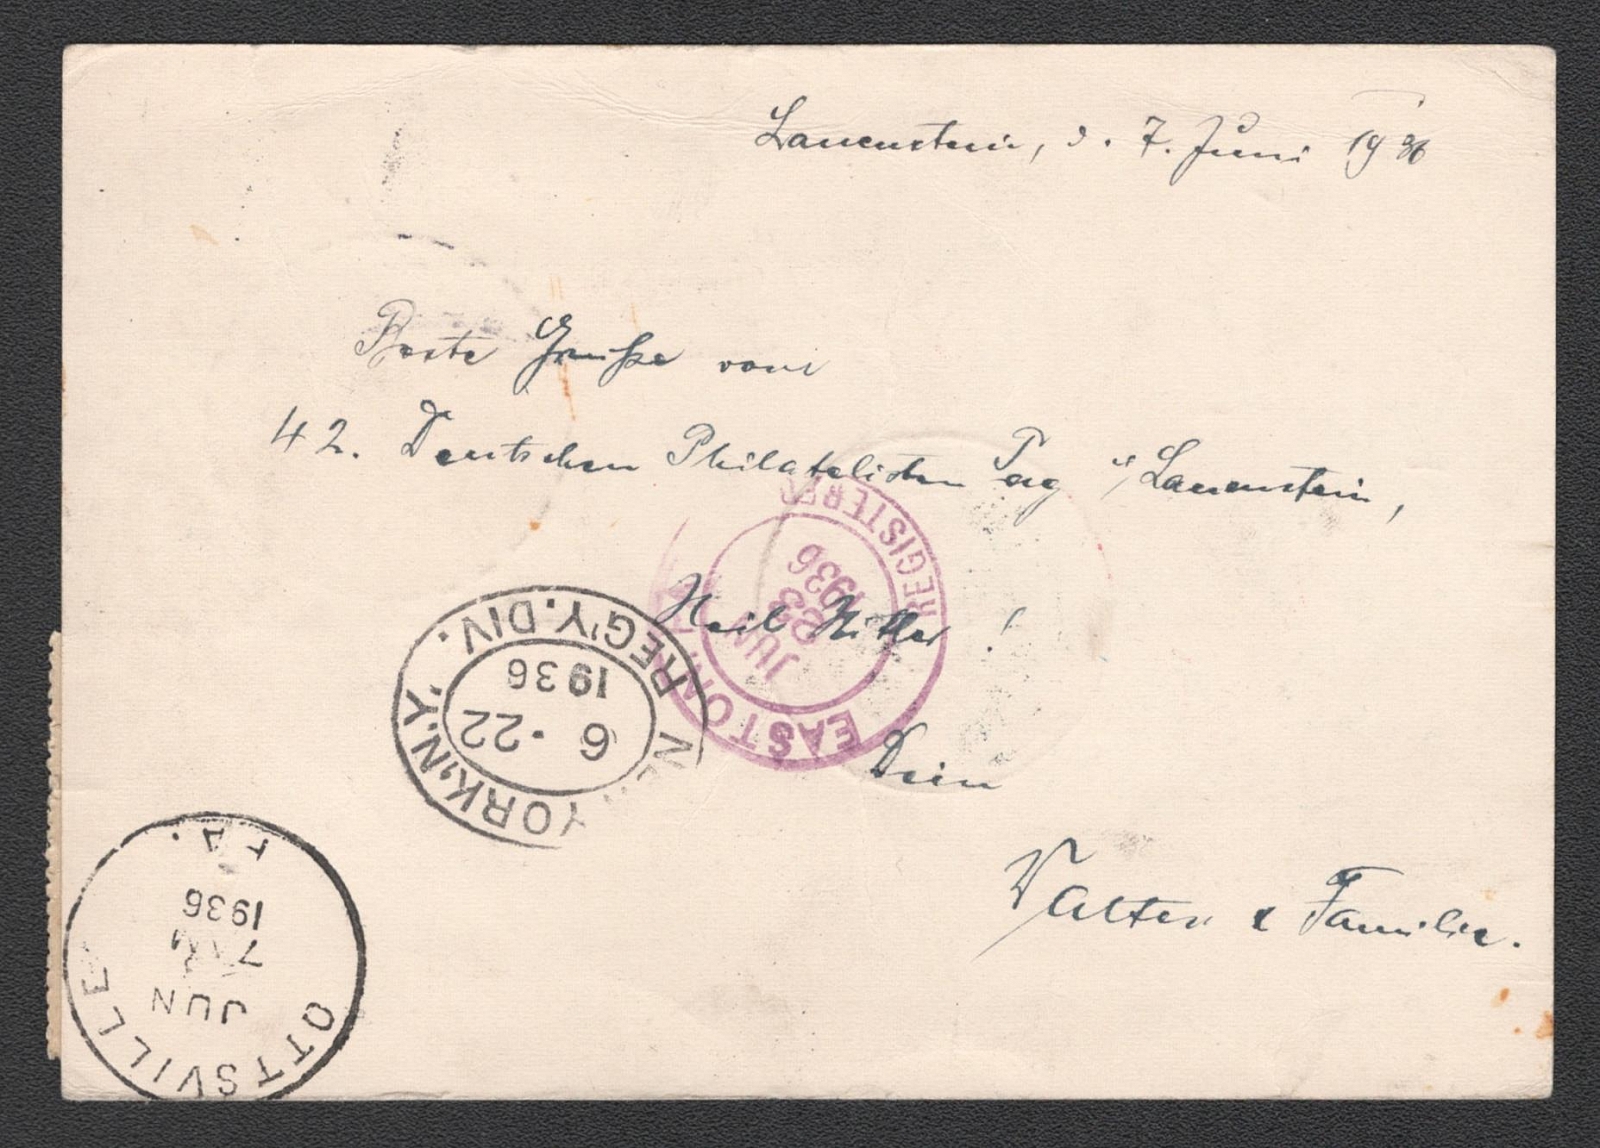 Lauenstein, d. 7. Juni 1936
Beste Grüße vom
42. Deutschen Philatelisten Tag i/Lauenstein,
Heil Hitler!
Dein
Walter & Familie.
REGISTERED
JUN
23
1936
EASTON, PA.
NEW YORK, N.Y. REG'Y. DIV.
6-22
1936
OTTSVILLE
JUN
7 AM
1936
PA.